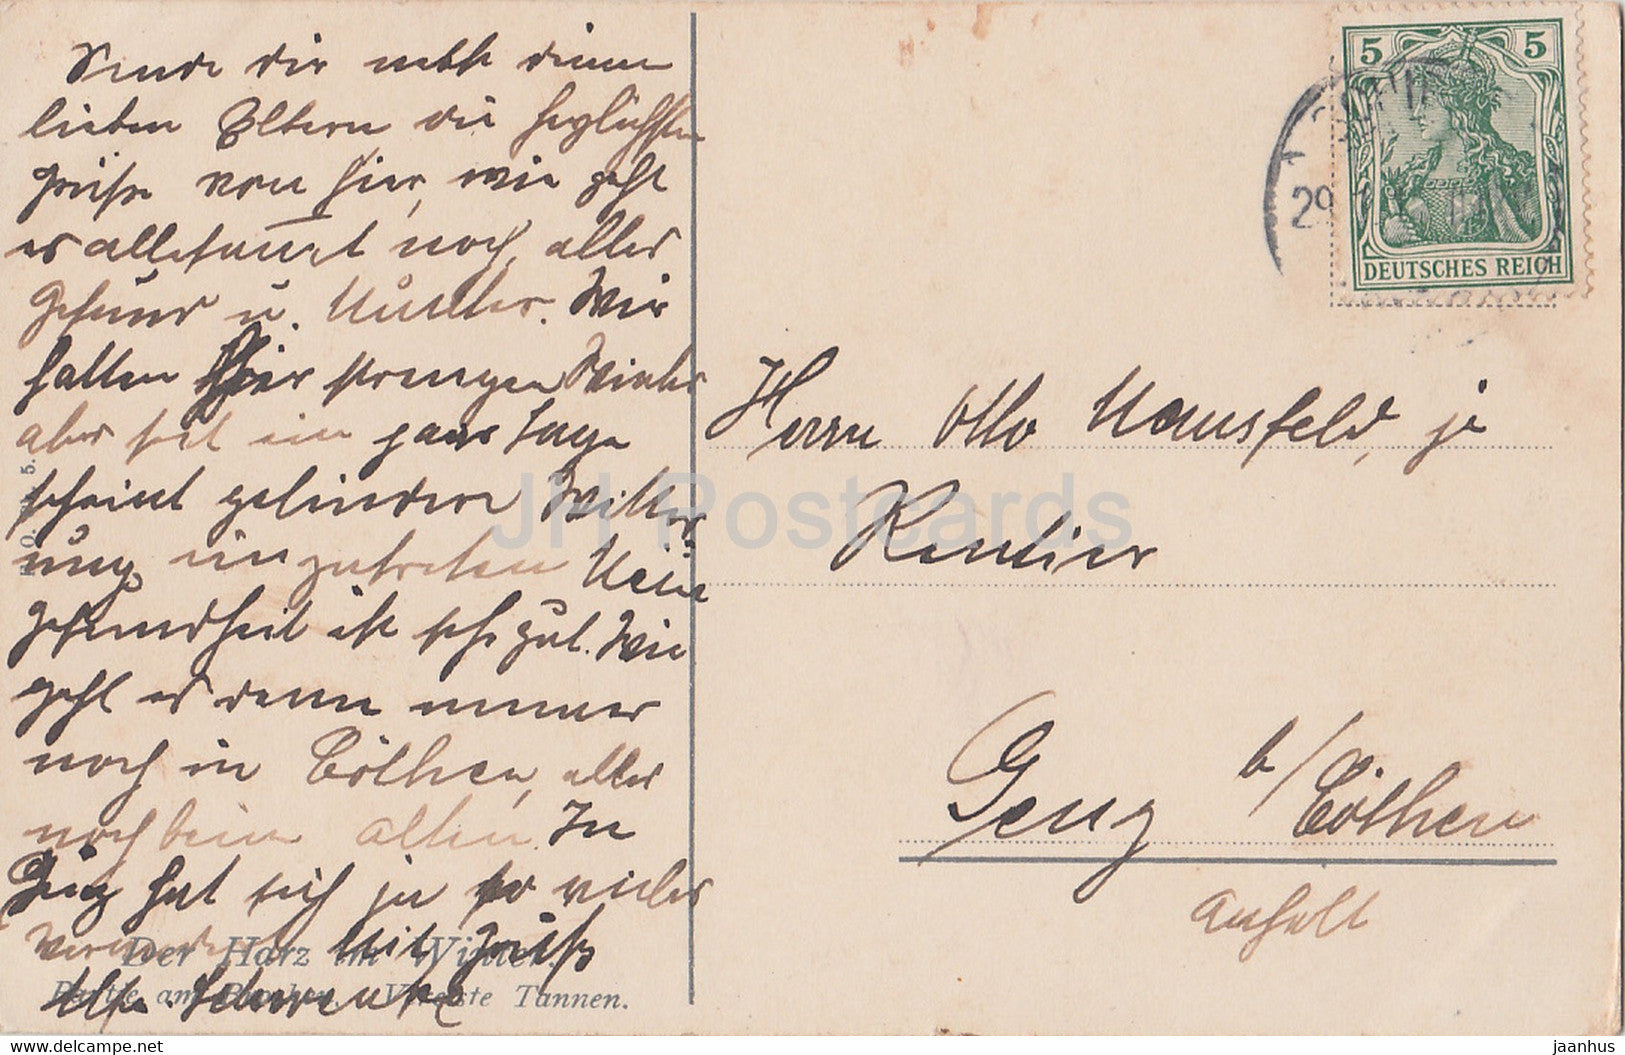 Sende dir nebst deinen
lieben Eltern die herzlichsten
Grüße von hier, wie geht
es allesamt noch, alles
Gesund u. Munter. Wir
hatten hier strengen Winter
aber seit ein paar Tage
scheint gelindere Witter
ung einzutreten Mein
Gesundheit ist sehr gut. Wie
geht es denn immer
noch in Cöthen, alles
noch beim alten. In
hat sich ja so vieles
verändert Mit Gruß
Schwenke
Der Harz im Winter.
Partie am Brocken. Vereiste Tannen.
5 5
DEUTSCHES REICH
29
Herrn Otto Mansfeld, jr
Rentier
Geuz b/Cöthen
Anhalt
JH Postcards
www.delcampe.net
jaanhus